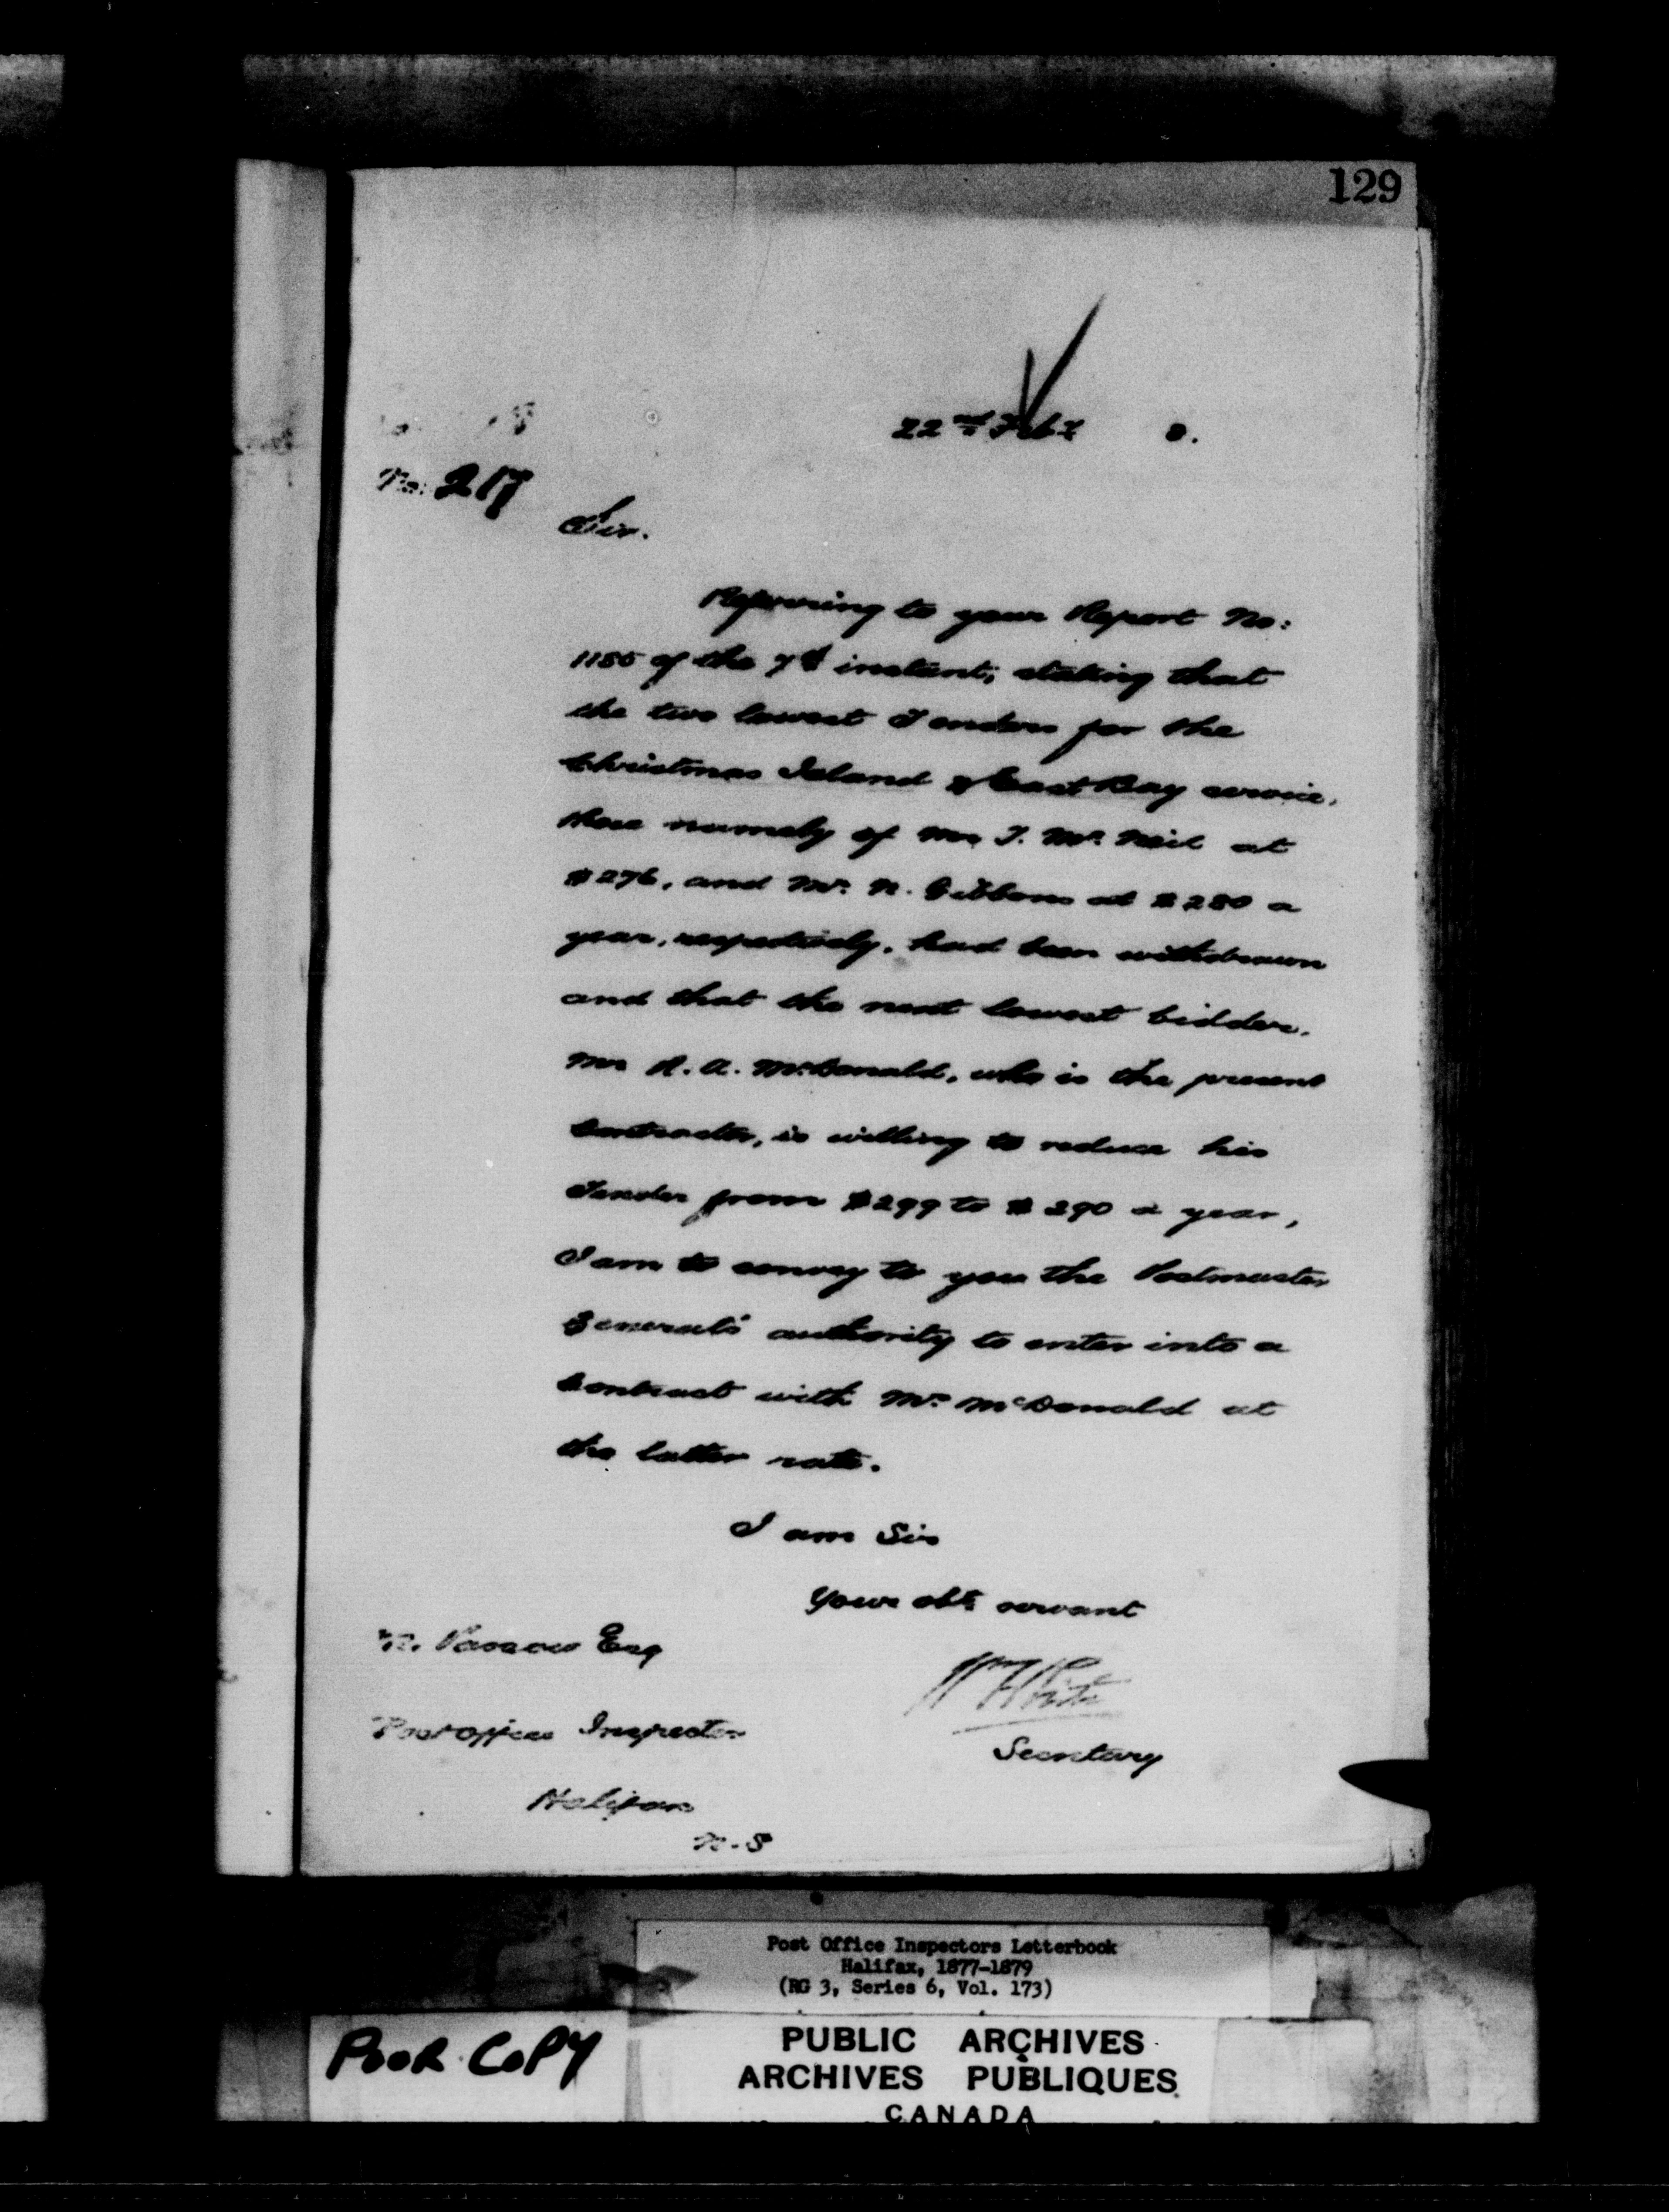 129
22nd Feby 8.
No: 217
Sir.
Referring to your Report No:
1185 of the 7th instant, stating that
the two lowest Tenders for the
Christmas Island & East Bay service,
those namely of Mr J. McNeil at
$276, and Mr. N. Gibbons at $280 a
year, respectively, had been withdrawn
and that the next lowest bidder,
Mr R. A. McDonald, who is the present
Contractor, is willing to reduce his
Tender from $299 to $290 a year,
I am to convey to you the Postmaster
General's authority to enter into a
Contract with Mr. McDonald at
the latter rate.
I am Sir
Your obt. servant
Esq
Secretary
Post office Inspector
Halifax
N.S
Post Office Inspectors Letterbook
Halifax, 1877-1879
(RG 3, Series 6, Vol. 173)
POOR COPY
PUBLIC ARCHIVES
ARCHIVES PUBLIQUES
CANADA